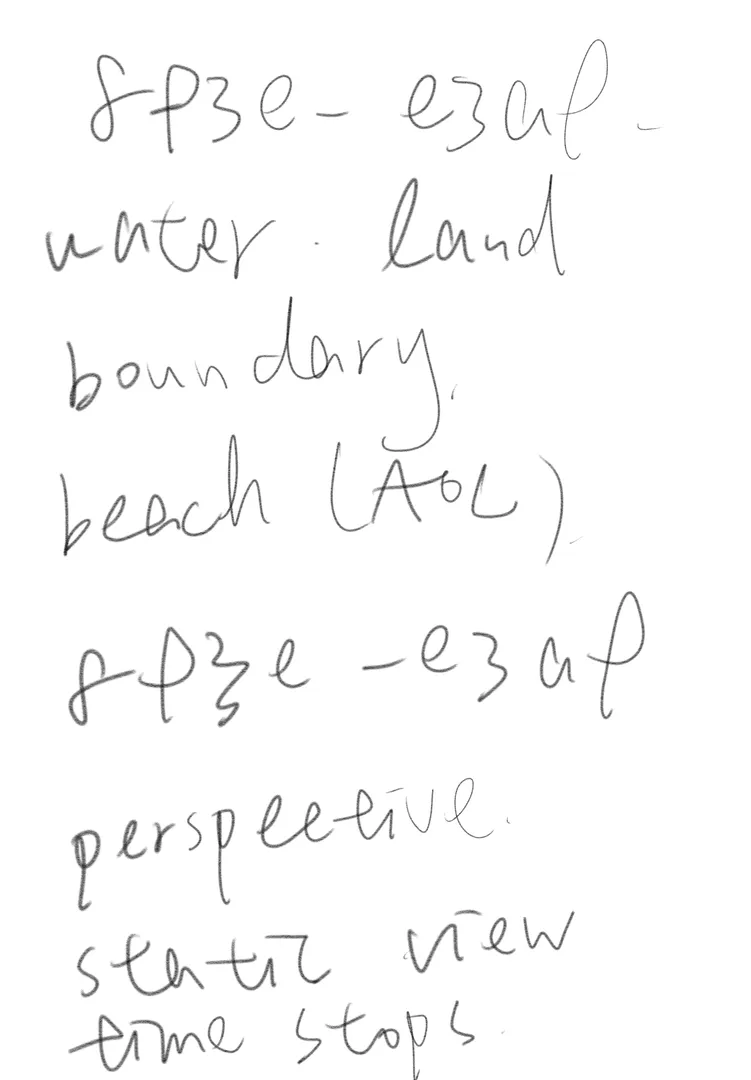 8p3e - e3af -
water. land
boundary.
beach (AOL)
8p3e - e3af
perspective.
static view
time stops.